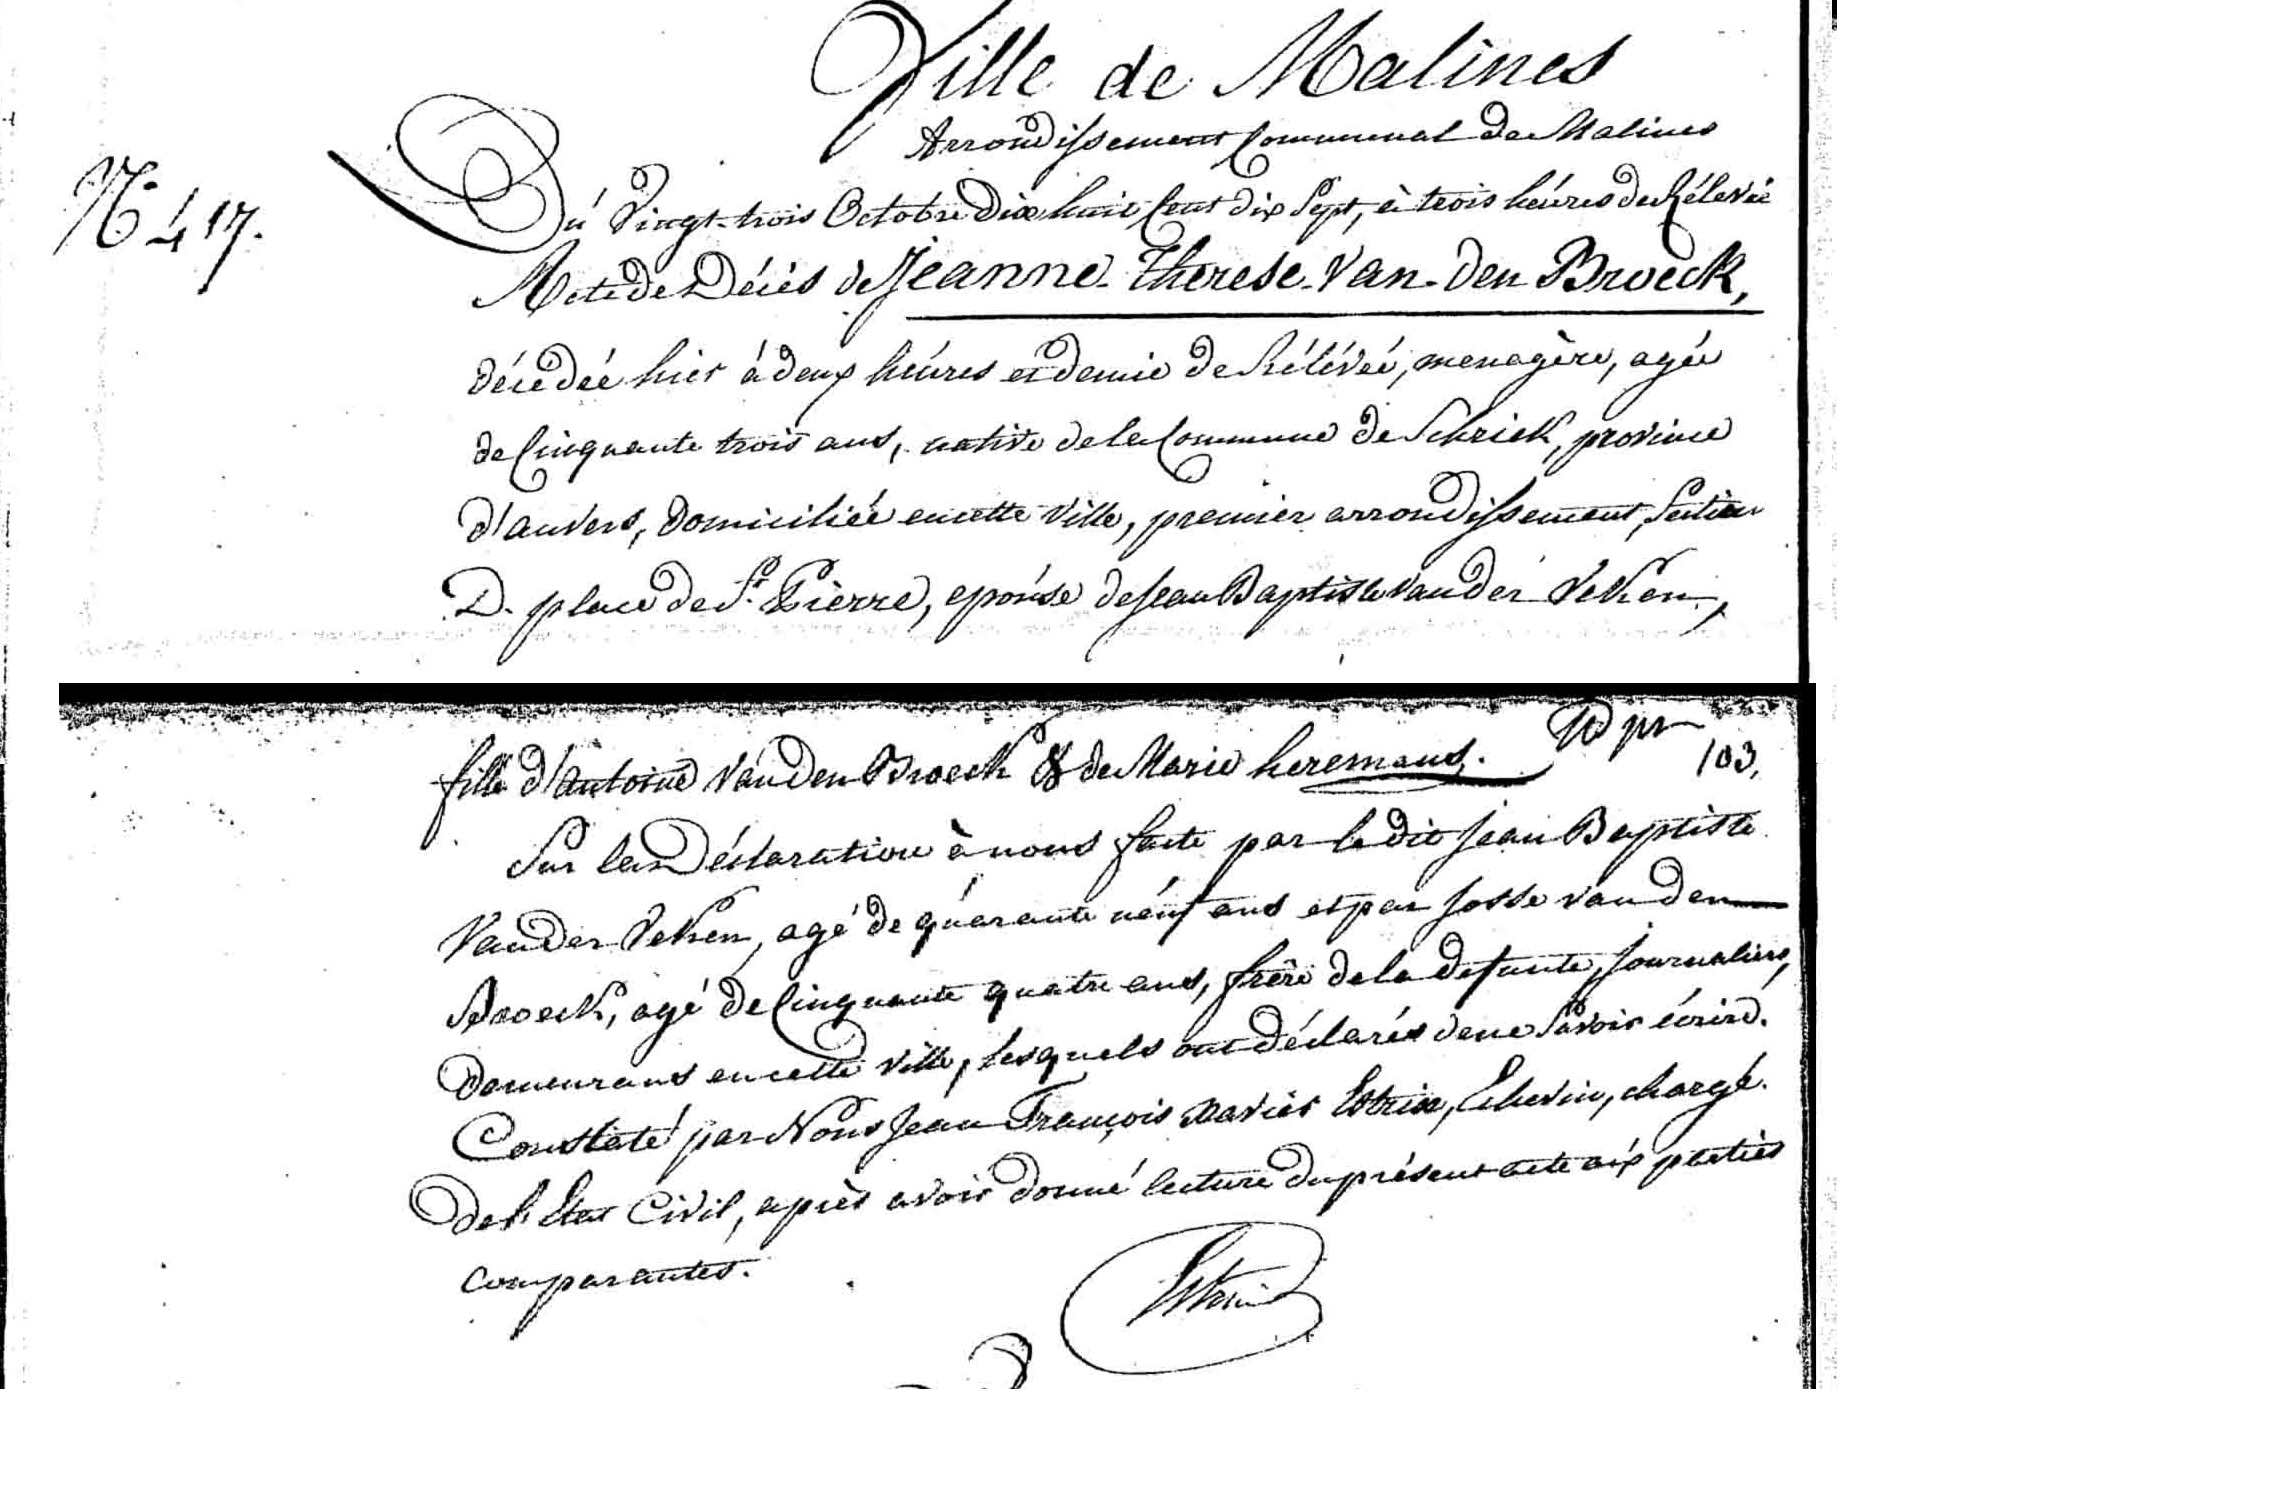 Ville de Malines
Arrondissement Communal de Malines
N.° 417.
Du Vingt-trois Octobre Dix huit Cent dix Sept, à trois héures de Rélevée
Acte de Décès de Jeanne-Therese-Van-den Broeck,
décédée hier à deux héures et demie de Rélévée, menagère, agée
de Cinquante trois ans, native de la Commune de Schriek, province
d'anvers, domiciliée en cette Ville, premier arrondissement, Section
D. place de St. Pièrre, epouse de Jean Baptiste Van der Veken,
fille d'Antoine Van den Broeck & de Marie heremans.
103,
Sur la Déclaration à nous faite par le dit Jean Baptiste
Van der Veken, agé de quarante néuf ans et par Josse Van den
Broeck, agé de Cinquante quatre ans, frère de la defunte, Journaliers,
demeurans en cette Ville, lesquels ont déclarés de ne Savoir écrire.
Constaté par Nous Jean François Xavier Estrix, Echevin, chargé
de l'Etat Civil, après avoir donné lecture du présent acte aux partiès
comparantes.
Estrix